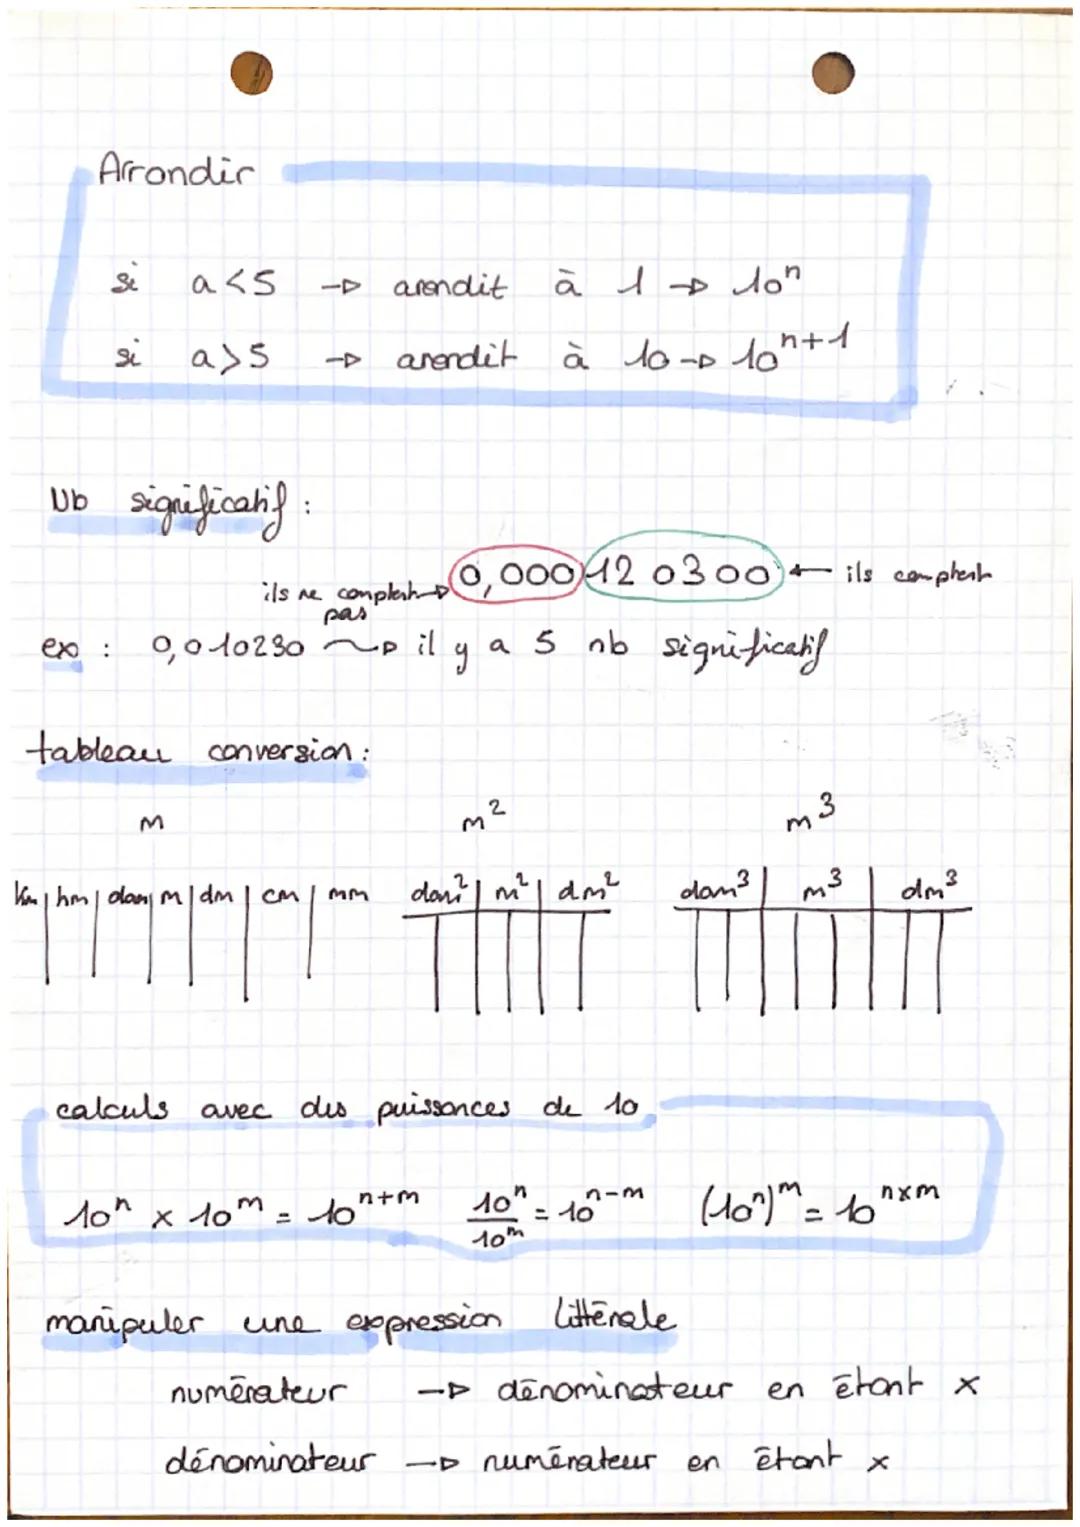 Arrondir
si a<5 → arondit à 1 → 10ⁿ
si a>5 → arondit à 10 → 10ⁿ⁺¹
Nb significatif :
0,000120300 ← ils comptent
ils ne comptent →
pas
ex : 0,010230 → il y a 5 nb significatif
tableau conversion :
m m² m³
km | hm | dam | m | dm | cm | mm dam² | m² | dm² dam³ | m³ | dm³
calculs avec des puissances de 10
10ⁿ × 10ᵐ = 10ⁿ⁺ᵐ 10ⁿ/10ᵐ = 10ⁿ⁻ᵐ (10ⁿ)ᵐ = 10ⁿˣᵐ
manipuler une expression littérale
numérateur → dénominateur en étant x
dénominateur → numérateur en étant x